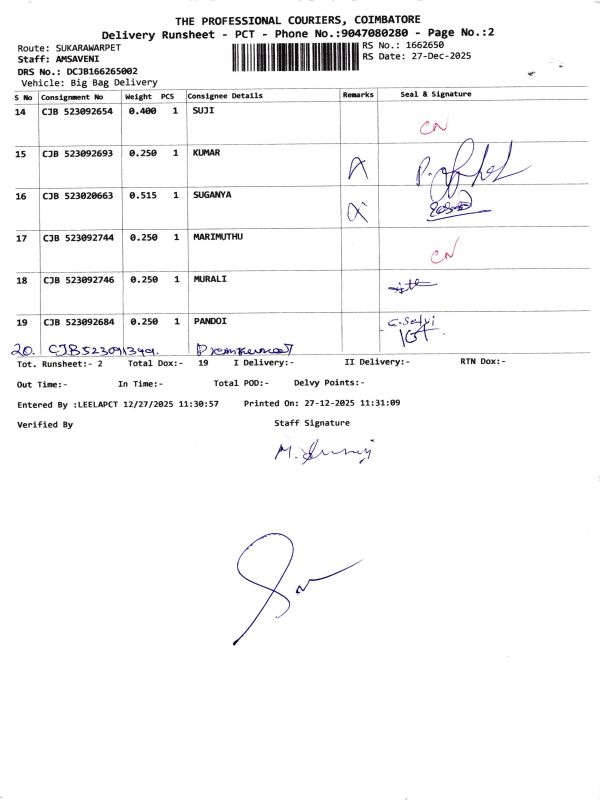 THE PROFESSIONAL COURIERS, COIMBATORE
Delivery Runsheet - PCT - Phone No.:9047080280 - Page No.:2
Route: SUKARAWARPET RS No.: 1662650
Staff: AMSAVENI RS Date: 27-Dec-2025
DRS No.: DCJB166265002
Vehicle: Big Bag Delivery
S No Consignment No Weight PCS Consignee Details Remarks Seal & Signature
14 CJB 523092654 0.400 1 SUJI CN
15 CJB 523092693 0.250 1 KUMAR
16 CJB 523020663 0.515 1 SUGANYA
17 CJB 523092744 0.250 1 MARIMUTHU CN
18 CJB 523092746 0.250 1 MURALI
19 CJB 523092684 0.250 1 PANDOI C. Selvi
20. CJB523091399. Premkumar
Tot. Runsheet:- 2 Total Dox:- 19 I Delivery:- II Delivery:- RTN Dox:-
Out Time:- In Time:- Total POD:- Delvy Points:-
Entered By :LEELAPCT 12/27/2025 11:30:57 Printed On: 27-12-2025 11:31:09
Verified By Staff Signature